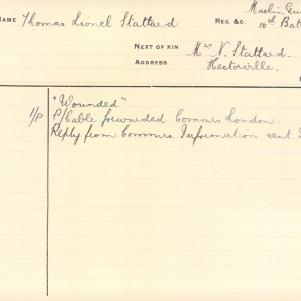 Machin Gun
NAME Thomas Lionel Stattard REG. &C. 10th Bat
NEXT OF KIN Mrs N. Stattard.
ADDRESS Hectorville.
"Wounded"
1/P P/Cable forwarded Commrs London.
Reply from Commrs. Information sent